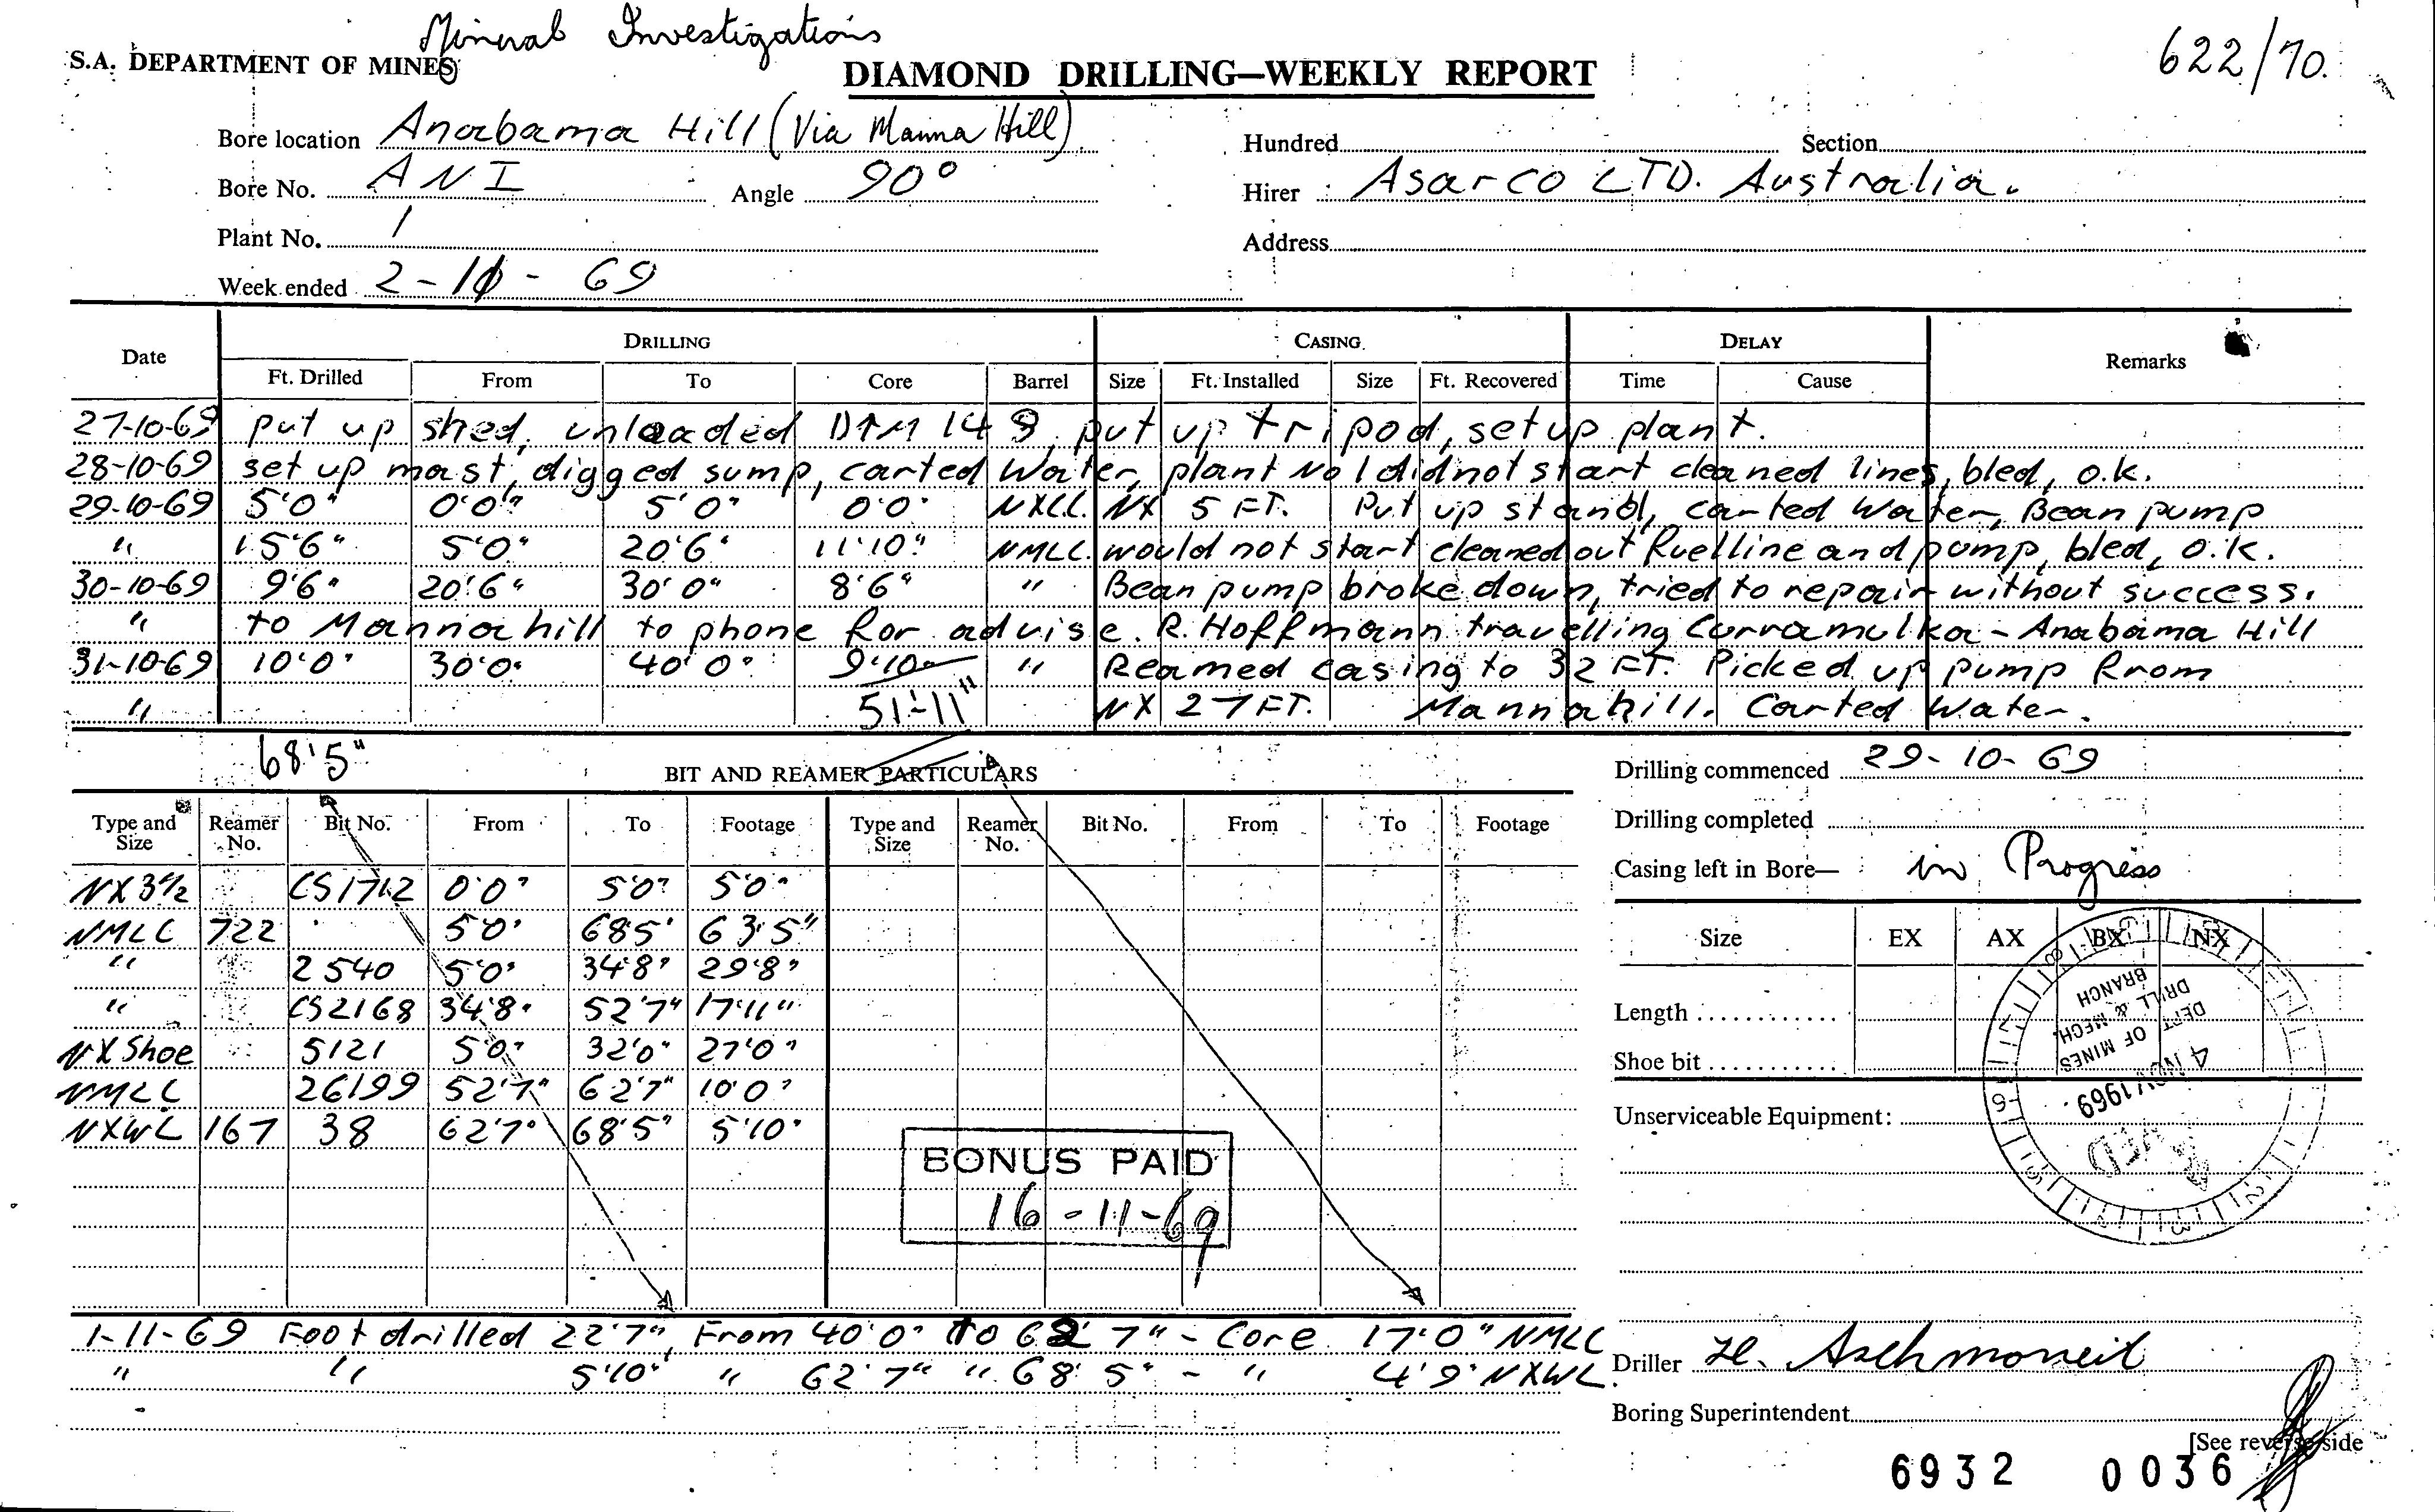 Mineral Investigations
S.A. DEPARTMENT OF MINES
622/70.
DIAMOND DRILLING—WEEKLY REPORT
Bore location Anabama Hill (Via Manna Hill)
Hundred Section
Bore No. AN I Angle 90°
Hirer Asarco LTD. Australia.
Plant No. 1
Address
Week ended 2-11-69
Date DRILLING CASING. DELAY Remarks
Ft. Drilled From To Core Barrel Size Ft. Installed Size Ft. Recovered Time Cause
27-10-69 put up shed, unloaded DTM 148, put up tripod, set up plant.
28-10-69 set up mast, digged sump, carted Water, plant No 1 did not start cleaned lines, bled, o.k.
29-10-69 5'0" 0'0" 5'0" 0'0" NXLL. NX 5 FT. Put up stand, carted Water, Bean pump
" 15'6" 5'0" 20'6" 11'10" NMLC. would not start cleaned out fuelline and pump, bled, O.K.
30-10-69 9'6" 20'6" 30'0" 8'6" " Bean pump broke down, tried to repair without success.
" to Mannahill to phone for advise. R. Hoffmann travelling Curramulka - Anabama Hill
31-10-69 10'0" 30'0" 40'0" 9'10" " Reamed casing to 32 FT. Picked up pump from
" 51'-11" NX 27 FT. Mannahill. Carted Water.
68'5"
BIT AND REAMER PARTICULARS
Drilling commenced 29-10-69
Type and Size Reamer No. Bit No. From To Footage Type and Size Reamer No. Bit No. From To Footage
Drilling completed
Casing left in Bore— in Progress
NX 3½ CS1712 0'0" 5'0" 5'0"
NMLC 722 5'0" 68'5" 63'5"
" 2540 5'0" 34'8" 29'8"
" CS2168 34'8" 52'7" 17'11"
NX Shoe 5121 5'0" 32'0" 27'0"
NMLC 26199 52'7" 62'7" 10'0"
NXWL 167 38 62'7" 68'5" 5'10"
Size EX AX BX NX
Length
Shoe bit
Unserviceable Equipment:
DEPT. OF MINES
DRILL & MECH.
BRANCH
4 NOV 1969
BONUS PAID
16-11-69
1-11-69 Foot drilled 22'7", From 40'0" to 62'7" - Core 17'0" NMLC
" " 5'10" " 62'7" " 68'5" - " 4'9" NXWL.
Driller H. Aschmoneit
Boring Superintendent
[See reverse side
6932 0036